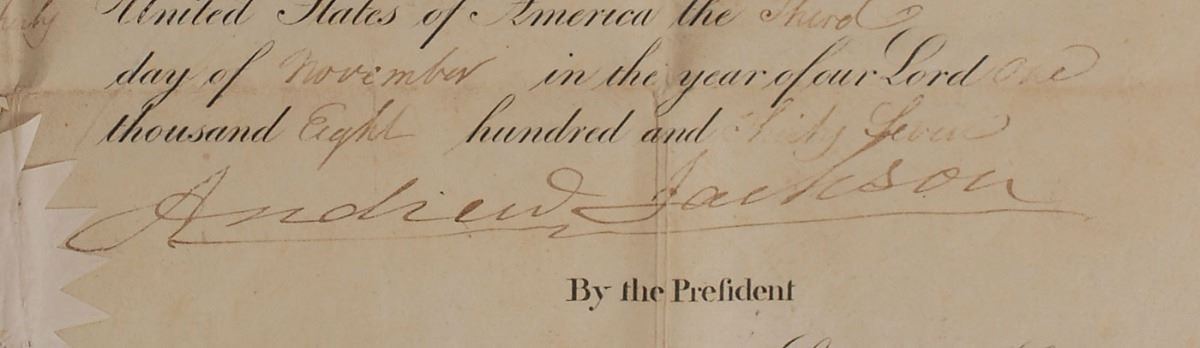 United States of America the Third
day of November in the year of our Lord One
thousand Eight hundred and Thirty Seven
Andrew Jackson
By the Preſident